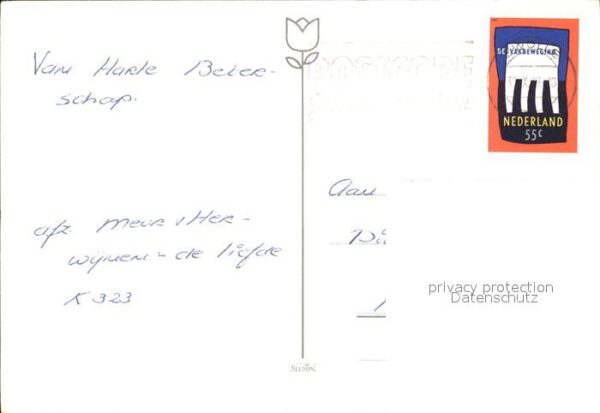 Van Harte Beter-
schap.
afz. Meur v Her-
wijnen - de liefde
K 323
POSTCODE
DE VAKBEWEGING
NEDERLAND
55c
Aan
privacy protection
Datenschutz